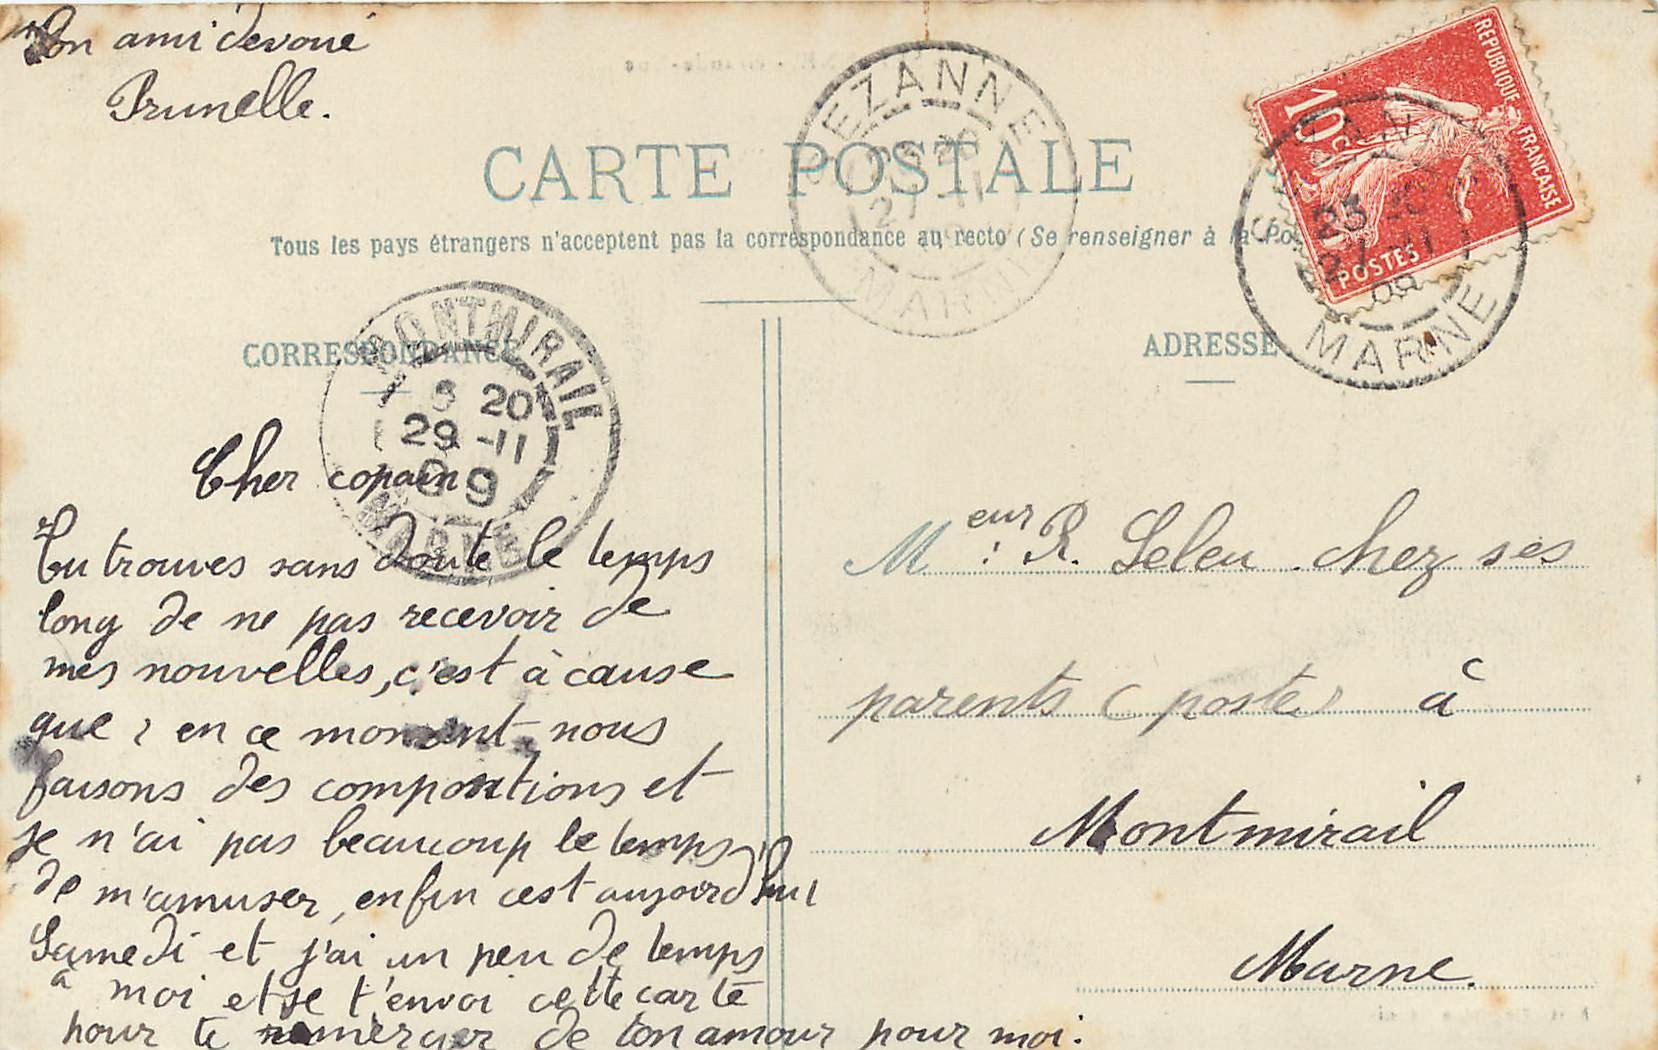 Ton ami devoué
Prunelle.
CARTE POSTALE
Tous les pays étrangers n'acceptent pas la correspondance au recto (Se renseigner à la Po
SEZANNE
23 20
27 - 11
09
MARNE
REPUBLIQUE FRANÇAISE
10 c
POSTES
SEZANNE
23
27 - 11
09
MARNE
CORRESPONDANCE
MONTMIRAIL
6 20
29 - 11
09
MARNE
Cher copain
Tu trouves sans doute le temps
long de ne pas recevoir de
mes nouvelles, c'est à cause
que, en ce moment nous
faisons des compositions et
je n'ai pas beaucoup le temps
de m'amuser, enfin cest aujourd'hui
Samedi et j'ai un peu de temps
à moi et je t'envoi cette carte
pour te remercier de ton amour pour moi.
ADRESSE
Meur: R. Leleu chez ses
parents (poste) à
Montmirail
Marne.